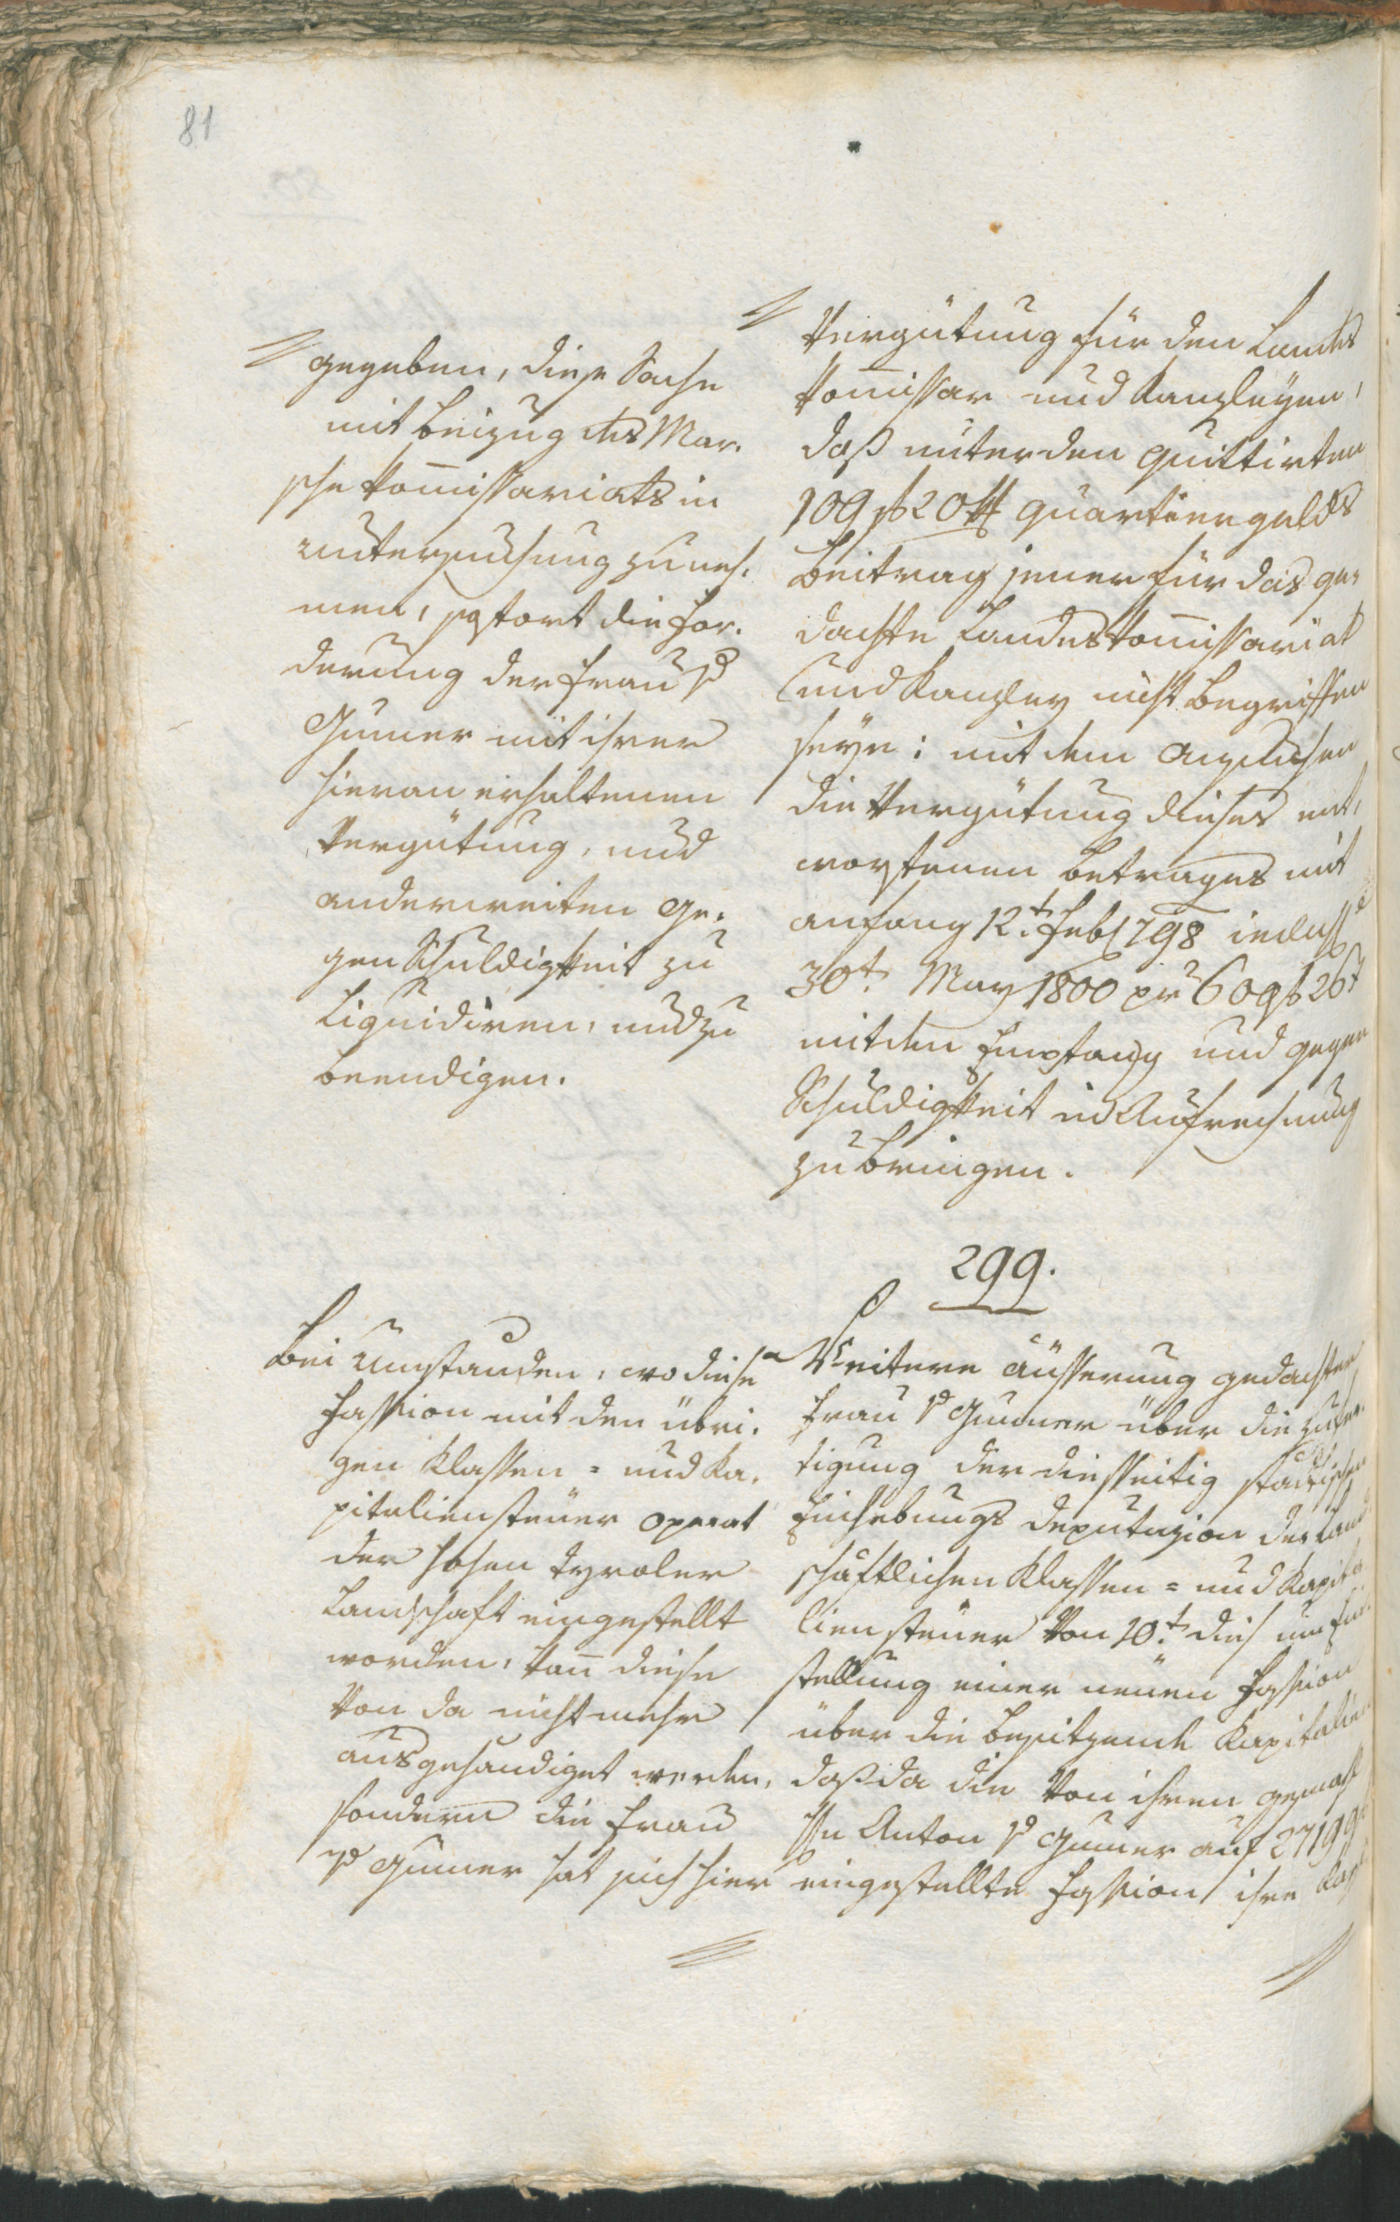 81
gegeben, diese Sache
mit Beizug des Mar.
sche Kom̅issariats in
Untersuchung zu neh.
men, sofort die For.
derung der Frau v
Gumer mit ihrer
hieran erhaltenen
Vergütung, und
anderweiten Ge.
gen Schuldigkeit zu
Liquidiren, und zu
beendigen.
Vergütung für den Landes
Kom̅issar und Kanzleyen,
daß unter den quittirten
109 f 20 x Quartiergelds
Beitrag jener für das ge,
dachte Landes Kom̅issariat
und Kanzley nicht begriffen
seye: mit dem Ansuchen
die Vergütung dieses ent,
worfenen Betrages mit
anfang 12t. Feb 1798 inclus
30t. May 1800 pr 609 f 26 x
mit den Empfang und gegen
Schuldigkeit in Aufrechnung
zu bringen.
299.
Bei Umständen, wo diese
Fassion mit den übri.
gen Klassen = und Ka.
pitaliensteuer Operat
der hohen Tyroler
Landschaft eingestellt
worden, kan̅ diese
von da nicht mehr
ausgehändiget werden,
sondern die Frau
v Gumer hat sich hier
Weitere äusserung gedachter
Frau v Gumer über die Zufer.
tigung der diesseitig städtischen
Einhebungs Deputazion der Land
schaftlichen Klassen = und Kapita
liensteuer von 10t. dies um Ein
stellung einer neuen Fassion
über die besitzende Kapitalien
daß da die von ihren Gemahl
Hn Anton v Gumer auf 27199
eingestellte Fassion ihre